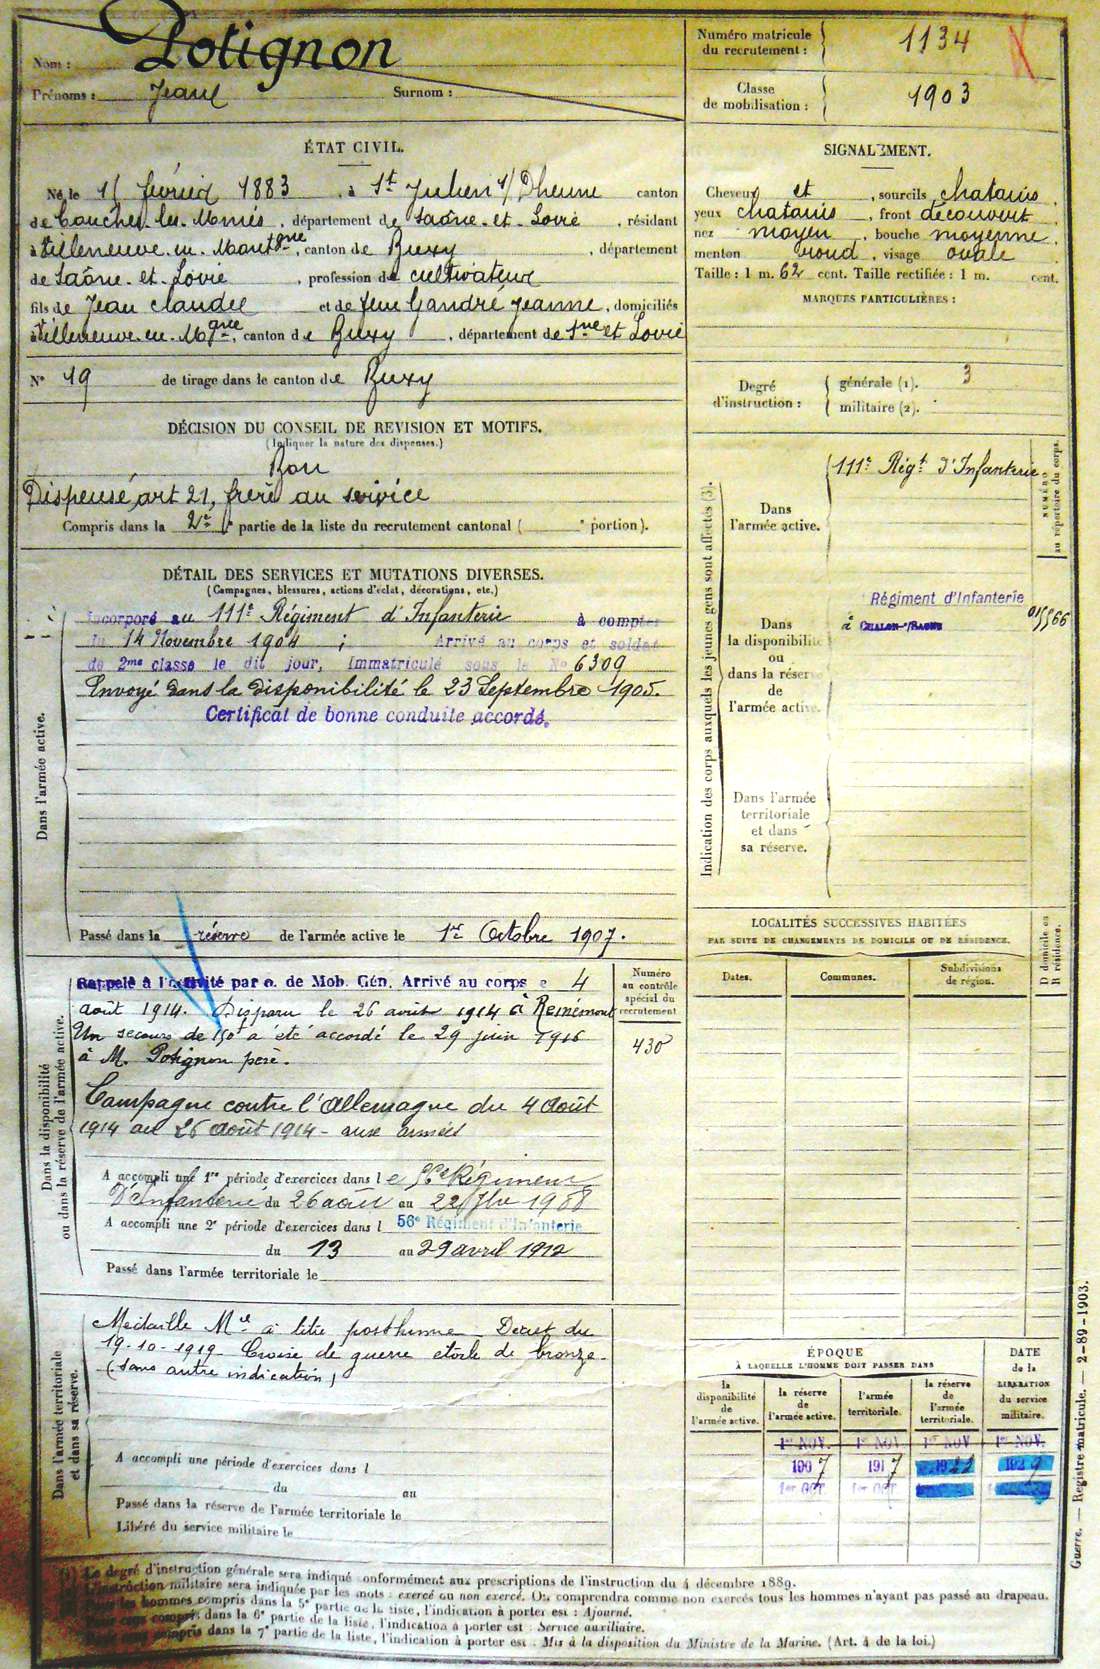 Nom : Potignon
Prénoms : Jean Surnom :
Numéro matricule du recrutement : 1134
Classe de mobilisation : 1903
ÉTAT CIVIL.
Né le février 1883, à St Julien s/ Dheune canton
de Couches-les-Mines, département de Saône-et-Loire, résidant
à Villeneuve-en-Montgne, canton de Buxy, département
de Saône-et-Loire, profession de cultivateur
fils de Jean Claude et de feue Gandré Jeanne, domiciliés
à Villeneuve-en-Mgne, canton de Buxy, département de Sne et Loire
N° 19 de tirage dans le canton de Buxy
DÉCISION DU CONSEIL DE REVISION ET MOTIFS.
(Indiquer la nature des dispenses.)
Bon
Dispensé art 21, frère au service
Compris dans la 2e partie de la liste du recrutement cantonal ( e portion).
DÉTAIL DES SERVICES ET MUTATIONS DIVERSES.
(Campagnes, blessures, actions d'éclat, décorations, etc.)
Dans l'armée active.
Incorporé au 111e Régiment d'Infanterie à compter
du 14 Novembre 1904 ; Arrivé au corps et soldat
de 2me classe le dit jour, Immatriculé sous le No 6309
Envoyé dans la disponibilité le 23 Septembre 1905.
Certificat de bonne conduite accordé.
Passé dans la réserve de l'armée active le 1er Octobre 1907.
Dans la disponibilité
ou dans la réserve de l'armée active.
Rappelé à l'activité par o. de Mob. Gén. Arrivé au corps e 4
août 1914. Disparu le 26 août 1914 à Reinémont
Un secours de 150f a été accordé le 29 juin 1916
à M. Potignon père.
Campagne contre l'Allemagne du 4 Août
1914 au 26 Août 1914 - aux armées
A accompli une 1re période d'exercices dans le 56e Régiment
d'Infanterie du 26 août au 22 7bre 1908
A accompli une 2e période d'exercices dans l 56e Régiment d'Infanterie
du 13 au 29 avril 1912
Passé dans l'armée territoriale le
Numéro
au contrôle
spécial du
recrutement
430
Dans l'armée territoriale
et dans sa réserve.
Médaille Mre à titre posthume Décret du
19-10-1919 Croix de guerre étoile de bronze.
(sans autre indication)
A accompli une période d'exercices dans l
du au
Passé dans la réserve de l'armée territoriale le
Libéré du service militaire le
SIGNALEMENT.
Cheveux et, sourcils chatains,
yeux chatains, front découvert,
nez moyen, bouche moyenne,
menton rond, visage ovale
Taille : 1 m. 62 cent. Taille rectifiée : 1 m. cent.
MARQUES PARTICULIÈRES :
Degré d'instruction : générale (1). 3
militaire (2).
Indication des corps auxquels les jeunes gens sont affectés (3).
NUMÉRO
au répertoire du corps.
Dans
l'armée active.
111e Régt d'Infanterie
Dans
la disponibilité
ou
dans la réserve
de
l'armée active.
Régiment d'Infanterie
à CHALON-s/SAONE
Dans l'armée
territoriale
et dans
sa réserve.
LOCALITÉS SUCCESSIVES HABITÉES
PAR SUITE DE CHANGEMENTS DE DOMICILE OU DE RÉSIDENCE.
Dates.
Communes.
Subdivisions
de région.
D domicile ou
R résidence.
ÉPOQUE
À LAQUELLE L'HOMME DOIT PASSER DANS
DATE
de la
LIBÉRATION
du service
militaire.
la
disponibilité
de
l'armée active.
la réserve
de
l'armée active.
l'armée
territoriale.
la réserve
de
l'armée
territoriale.
1er NOV. 1er NOV 1er NOV 1er NOV.
1907 1917
1er OCT. 1er OCT.
Guerre. — Registre matricule. — 2-89-1903.
(1) Le degré d'instruction générale sera indiqué conformément aux prescriptions de l'instruction du 4 décembre 1889.
L'instruction militaire sera indiquée par les mots : exercé ou non exercé. On comprendra comme non exercés tous les hommes n'ayant pas passé au drapeau.
Pour les hommes compris dans la 5e partie de la liste, l'indication à porter est : Ajourné.
Pour ceux compris dans la 6e partie de la liste, l'indication à porter est : Service auxiliaire.
Pour ceux compris dans la 7e partie de la liste, l'indication à porter est : Mis à la disposition du Ministre de la Marine. (Art. 4 de la loi.)